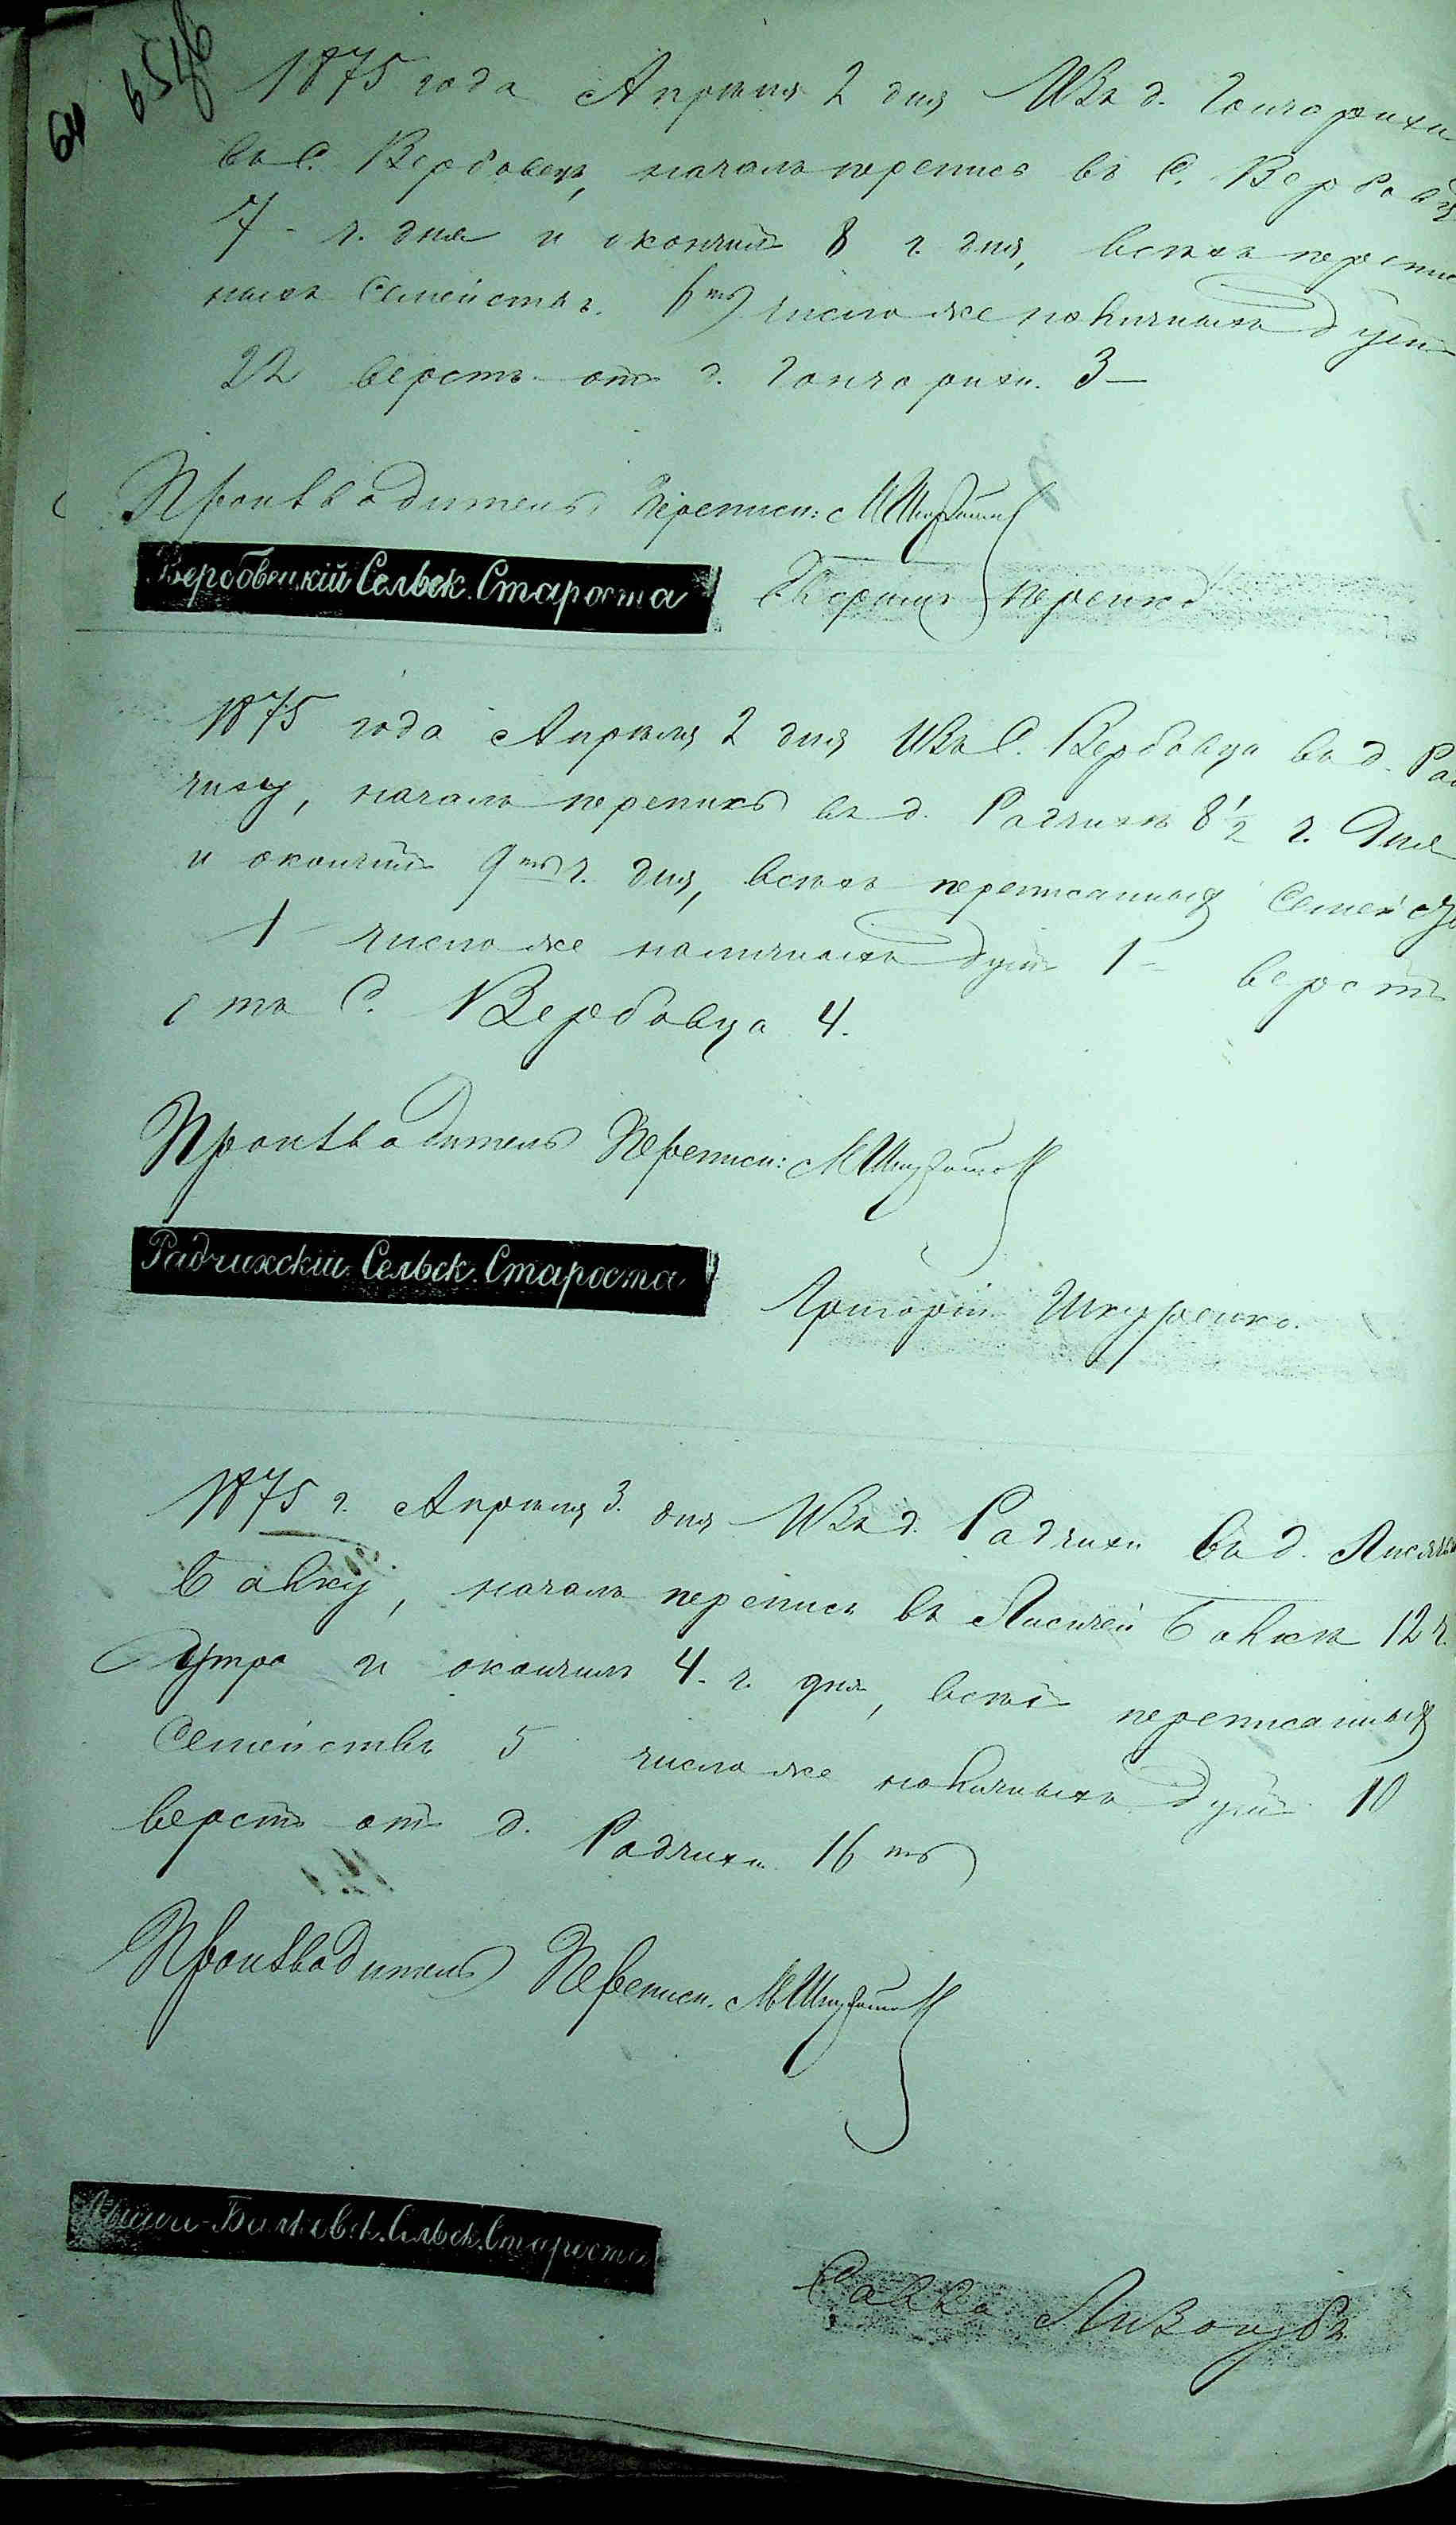 64 654об
1875 года Апрѣля 2 дня Изъ д. Гончарихи
въ С. Вербовецъ, началъ перепись въ С. Вербовцѣ
7 - ч. дня и окончилъ 8 ч. дня, всѣхъ переписан
ныхъ Семействъ. 6ть число же наличныхъ душъ
22 верстъ отъ д. Гончарихи. 3 —
Производитель Переписи:
Вербовецкій Сельск. Староста
1875 года Апрѣля 2 дня Изъ С. Вербовца въ д. Рад
чиху, началъ перепись въ д. Радчихѣ 8 1/2 ч. Дня
и окончилъ 9ть ч. дня, всѣхъ переписанныхъ Семейств
1 число же наличныхъ душъ 1 - верстъ
отъ С. Вербовца 4.
Производитель Переписи:
Радчихскій Сельск. Староста
Григорій Шкуренко.
1875 г. Апрѣля 3. дня Изъ д. Радчихи въ д. Лисичью
Балку, началъ перепись въ Лисичей Балкѣ 12 ч.
утра и окончилъ 4. ч. дня, всѣхъ переписанныхъ
Семействъ 5 число же наличныхъ душъ 10
верстъ отъ д. Радчихи 16ть
Производитель Переписи.
Балковск. Сельск. Староста
Савва